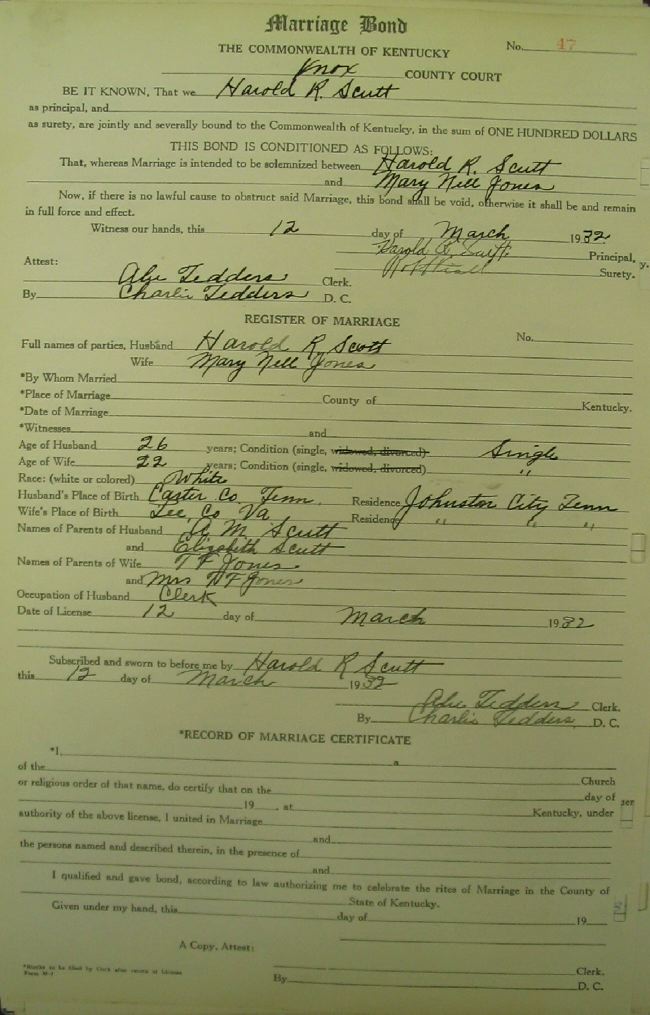 Marriage Bond
THE COMMONWEALTH OF KENTUCKY
No. 47
Knox COUNTY COURT
BE IT KNOWN, That we Harold R. Scutt
as principal, and
as surety, are jointly and severally bound to the Commonwealth of Kentucky, in the sum of ONE HUNDRED DOLLARS
THIS BOND IS CONDITIONED AS FOLLOWS:
That, whereas Marriage is intended to be solemnized between Harold R. Scutt
and Mary Nell Jones
Now, if there is no lawful cause to obstruct said Marriage, this bond shall be void, otherwise it shall be and remain
in full force and effect.
Witness our hands, this 12 day of March 1932
Harold R. Scutt Principal,
Surety.
Attest:
Alve Tedders Clerk.
By Charlie Tedders D. C.
REGISTER OF MARRIAGE
Full names of parties, Husband Harold R Scott No.
Wife Mary Nell Jones
*By Whom Married
*Place of Marriage County of Kentucky.
*Date of Marriage
*Witnesses and
Age of Husband 26 years; Condition (single, widowed, divorced) Single
Age of Wife 22 years; Condition (single, widowed, divorced) "
Race: (white or colored) White
Husband's Place of Birth Carter Co. Tenn. Residence Johnston City Tenn
Wife's Place of Birth Lee, Co Va, Residence " " "
Names of Parents of Husband M. Scutt
and Elizabeth Scutt
Names of Parents of Wife T F Jones
and Mrs Jones
Occupation of Husband Clerk
Date of License 12 day of March 1932
Subscribed and sworn to before me by Harold R Scutt
this 12 day of March 1932
Alve Tedders Clerk.
By Charlie Tedders, D. C.
*RECORD OF MARRIAGE CERTIFICATE
*I, a
of the Church
or religious order of that name, do certify that on the day of
19 , at Kentucky, under
authority of the above license, I united in Marriage
and
the persons named and described therein, in the presence of
and
I qualified and gave bond, according to law authorizing me to celebrate the rites of Marriage in the County of
State of Kentucky.
Given under my hand, this day of 19
A Copy, Attest:
Clerk.
By D. C.
*Blanks to be filled by Clerk after return of License